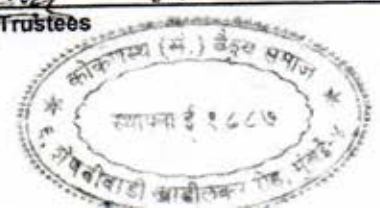 Trustees
कोकणस्थ (मं.) वैश्य समाज
स्थापना ई १८८७
६, शेणवीवाडी खाडीलकर रोड, मुंबई-४